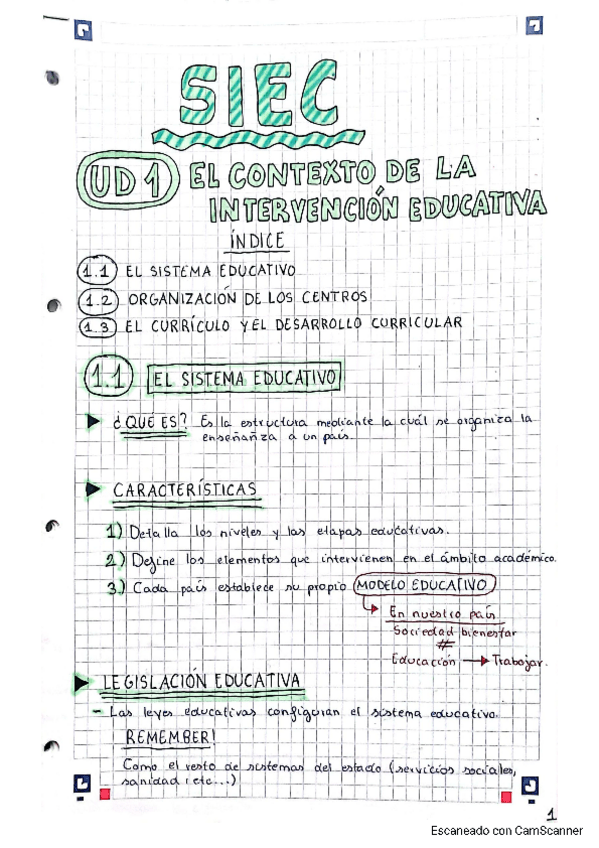 SIEC
UD 1 EL CONTEXTO DE LA
INTERVENCIÓN EDUCATIVA
ÍNDICE
1.1 EL SISTEMA EDUCATIVO
1.2 ORGANIZACIÓN DE LOS CENTROS
1.3 EL CURRÍCULO Y EL DESARROLLO CURRICULAR
1.1 EL SISTEMA EDUCATIVO
¿QUÉ ES? Es la estructura mediante la cuál se organiza la
enseñanza a un país.
CARACTERÍSTICAS
1) Detalla los niveles y las etapas educativas.
2) Define los elementos que intervienen en el ámbito académico.
3) Cada país establece su propio MODELO EDUCATIVO
En nuestro país
Sociedad bienestar
#
Educación → Trabajar.
LEGISLACIÓN EDUCATIVA
- Las leyes educativas configuran el sistema educativo.
REMEMBER!
Como el resto de sistemas del estado (servicios sociales,
sanidad, etc...)
1
Escaneado con CamScanner